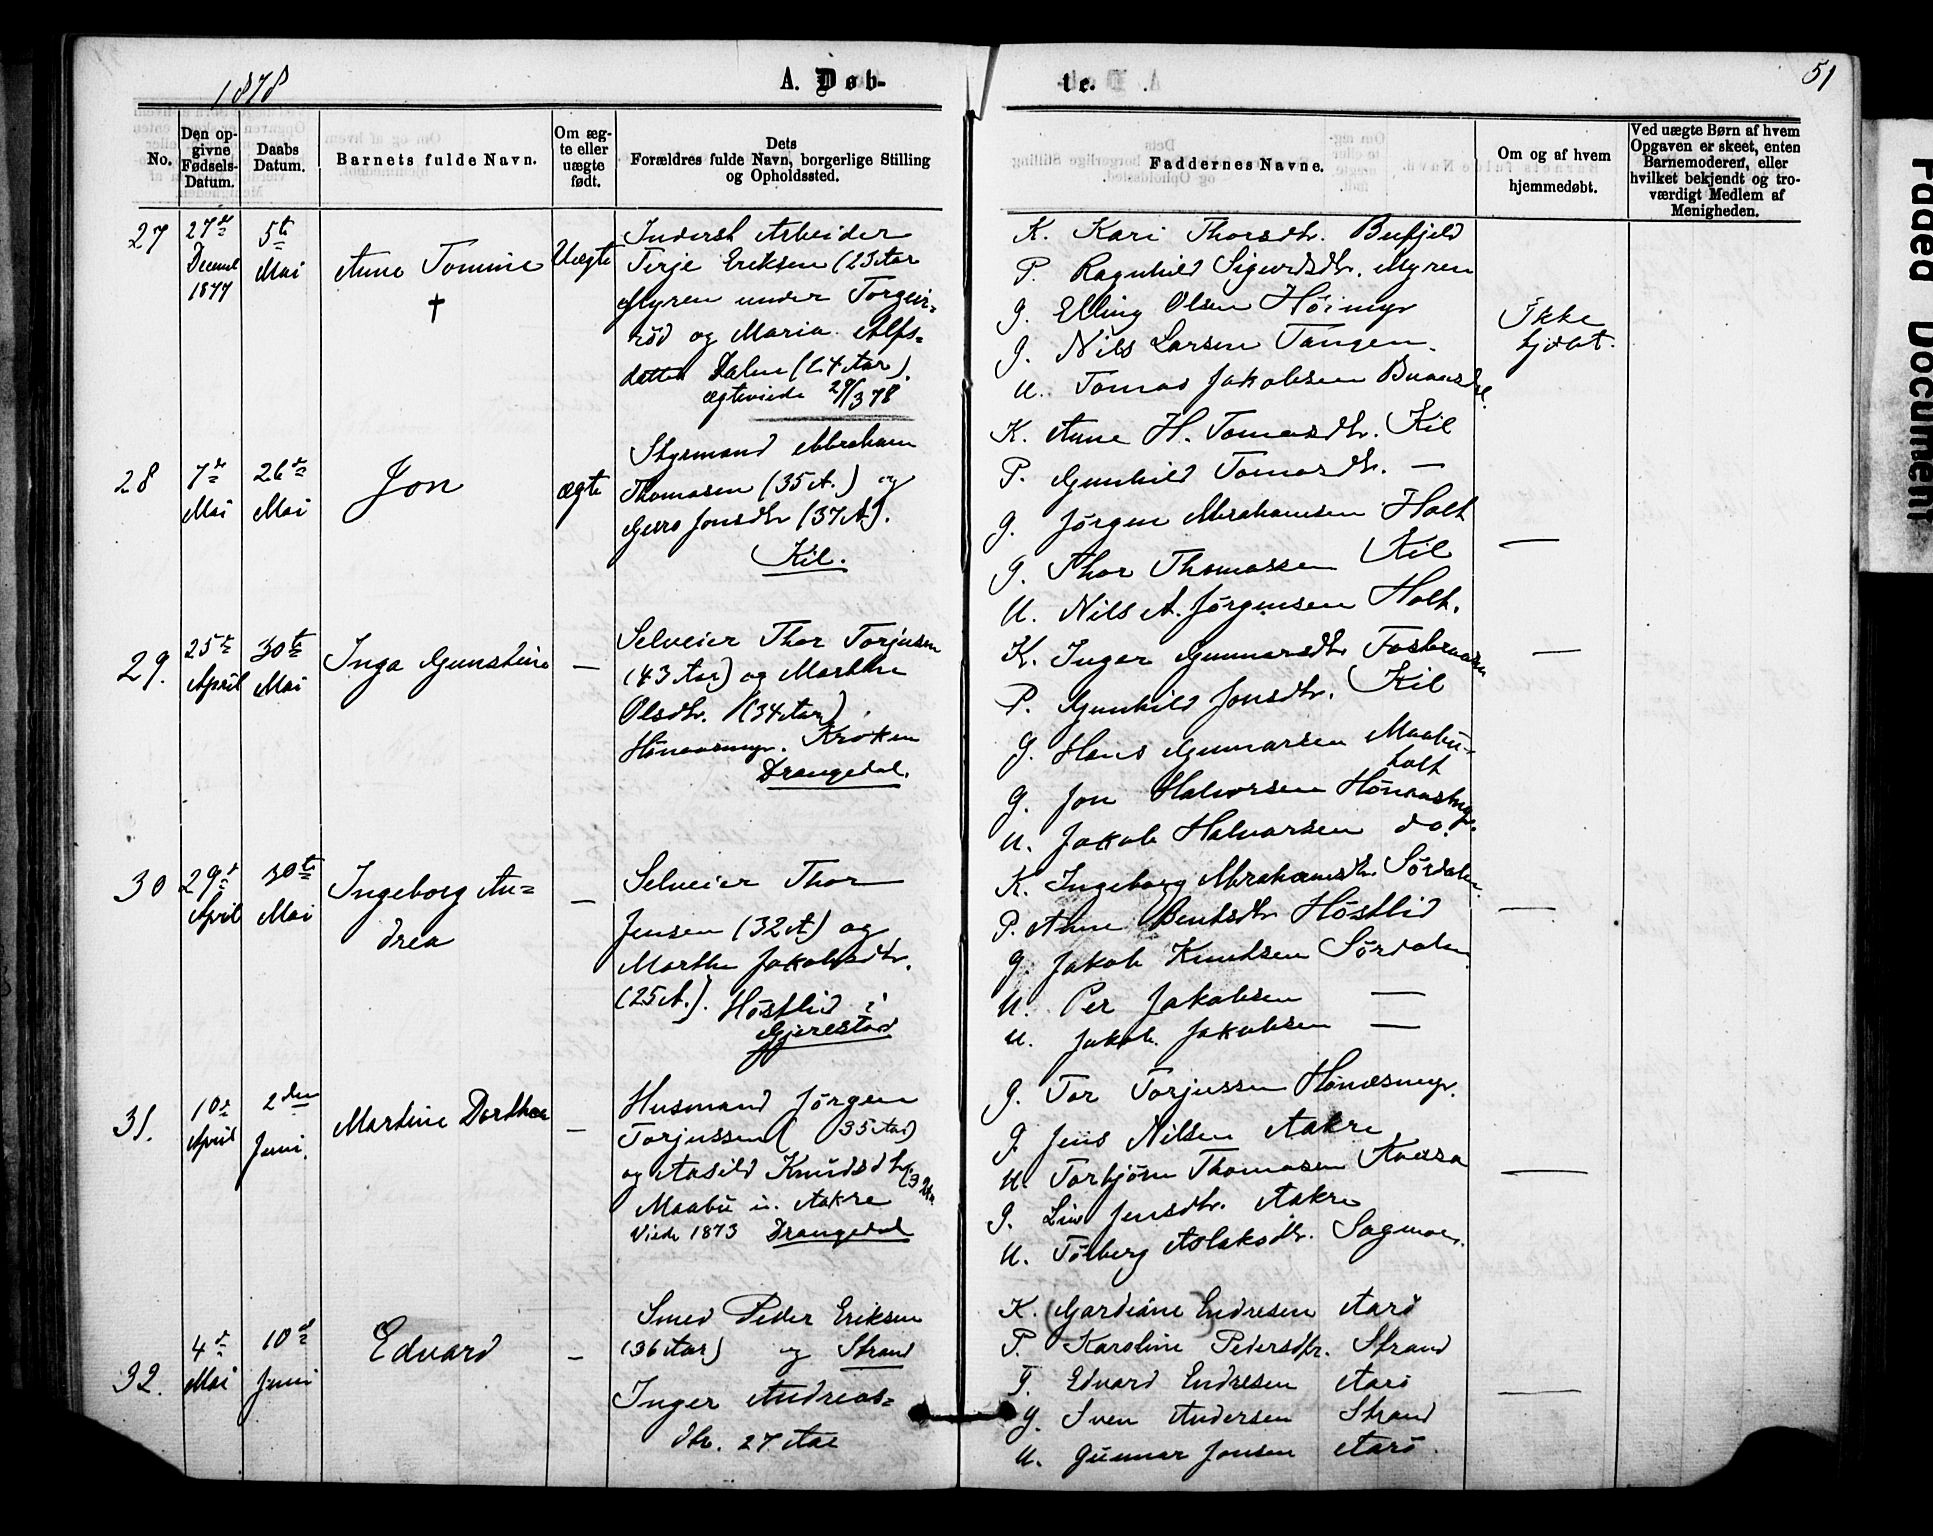 1878
A. Døb-
te.
51
No.
Den opgivne Fødsels-Datum.
Daabs Datum.
Barnets fulde Navn.
Om ægte eller uægte født.
Dets Forældres fulde Navn, borgerlige Stilling og Opholdssted.
Faddernes Navne.
Om og af hvem hjemmedøbt.
Ved uægte Børn af hvem Opgaven er skeet, enten Barnemoderen, eller hvilket bekjendt og troværdigt Medlem af Menigheden.
27
27de
Decemb
1877
5te
Mai
Anne Tomine
†
Uægte
Inderst Arbeider
Terje Eriksen (23 Aar
Myren under Torgeir-
rød og Maria Alfs-
datter Dalen (24 Aar).
ægteviede 29/3 78
K. Kari Thorsdtr. Bufjeld
P. Ragnhild Sigurdsdtr. Myren
G. Elling Olsen Höimyr
G. Nils Larsen Tangen
U. Tomas Jakobsen
Ikke
hjdbt.
28
7de
Mai
26de
Mai
Jon
ægte
Styrmand Abraham
Thomasen (35 A.) og
Guro Jonsdtr (37 A).
Kil.
K. Anne H. Tomasdtr. Kil
P. Gunhild Tomasdtr. —
G. Jørgen Abrahamsen Holt
G. Thor Thomassen Kil
U. Nils A. Jørgensen Holt.
—
29.
25de
April
30te
Mai
Inga Gunstine
—
Selveier Thor Torjusen
(43 Aar) og Marthe
Olsdtr. (34 Aar)
Hönaasmyr. Kroken
Drangedal.
K. Inger Gunnarsdtr Fosbraaten
P. Gunhild Jonsdtr. Kil
G. Hans Gunnarsen Maabu-
holt
G. Jon Halvorsen Hönaasmyr.
U. Jakob Halvorsen do.
—
30
29de
April
30te
Mai
Ingeborg An=
drea
—
Selveier Thor
Jensen (32 A) og
Marthe Jakobsdtr.
(25 A.). Høstlid i
Gjerestad
K. Ingeborg Abrahamsdtr Sørdalen
P. Anne Bentsdtr Høstlid
G. Jakob Knudsen Sørdalen
U. Per Jakobsen —
U. Jakob Jakobsen —
—
31.
10de
April
2den
Juni.
Martine Dorthea
—
Husmand Jørgen
Torjussen (35 Aar)
og Aasild Knudsdtr (32 Aar
Maabu u. Aakre
Viede 1873 Drangedal
G. Tor Torjussen Hönaasmyr.
G. Jens Nilsen Aakre
U. Torbjørn Thomasen
G. Liv Jensdtr. Aakre
U. Tørberg Aslaksdtr. Sagmoen.
—
32.
4de
Mai
10de
Juni
Edvard
—
Smed Peder Eriksen
(36 Aar) og Strand
Inger Andreas=
dtr. 27 Aar
K. Gardiäne Endresen Aarö
P. Karoline Pedersdtr. Strand
G. Edvard Endresen Aarö
G. Sven Andersen Strand
U. Gunnar Jonsen Aarö.
—
Faded Document